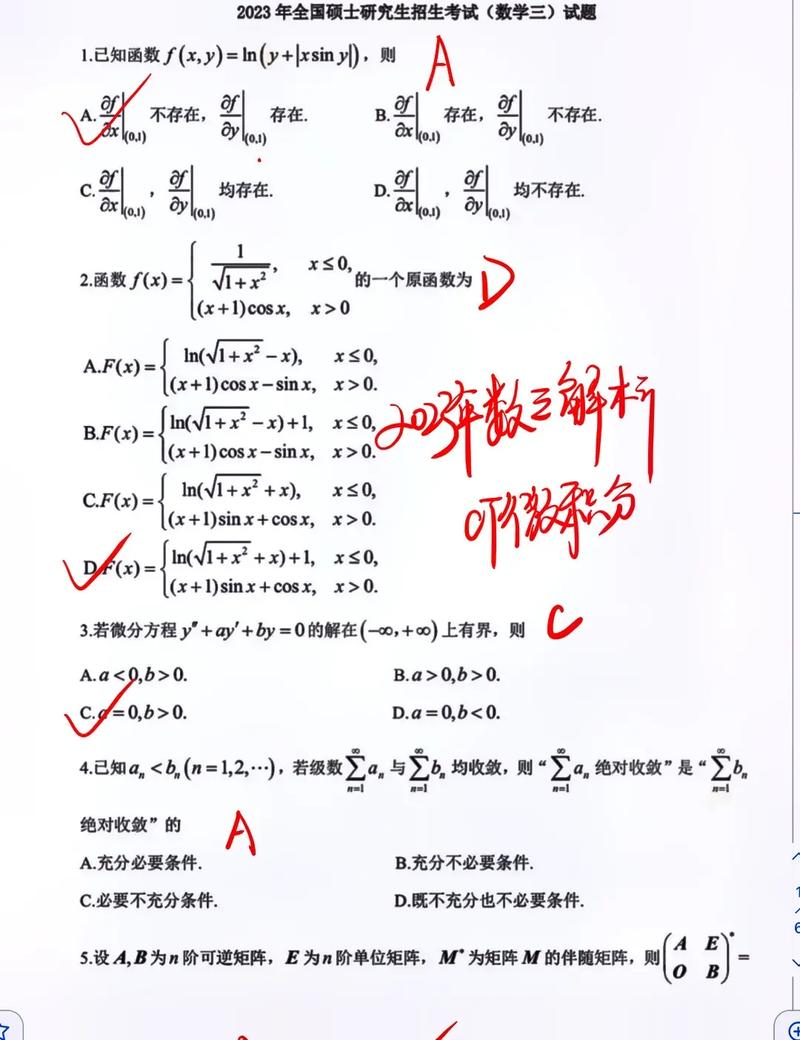 2023年全国硕士研究生招生考试（数学三）试题
1.已知函数 f(x,y)=ln(y+|xsin y|)，则 A
A.∂f/∂x|(0,1) 不存在，∂f/∂y|(0,1) 存在. B.∂f/∂x|(0,1) 存在，∂f/∂y|(0,1) 不存在.
C.∂f/∂x|(0,1)，∂f/∂y|(0,1) 均存在. D.∂f/∂x|(0,1)，∂f/∂y|(0,1) 均不存在.
2.函数 f(x)={1/√(1+x²), x≤0, (x+1)cosx, x>0 的一个原函数为 D
A.F(x)={ln(√(1+x²)-x), x≤0,
(x+1)cosx-sinx, x>0.
B.F(x)={ln(√(1+x²)-x)+1, x≤0,
(x+1)cosx-sinx, x>0.
2023年数三解析
C.F(x)={ln(√(1+x²)+x), x≤0,
(x+1)sinx+cosx, x>0.
微积分
D.F(x)={ln(√(1+x²)+x)+1, x≤0,
(x+1)sinx+cosx, x>0.
3.若微分方程 y″+ay′+by=0的解在(-∞,+∞)上有界，则 C
A.a<0,b>0. B.a>0,b>0.
C.a=0,b>0. D.a=0,b<0.
4.已知aₙ<bₙ(n=1,2,⋯)，若级数∑(n=1→∞)aₙ与∑(n=1→∞)bₙ均收敛，则“∑(n=1→∞)aₙ绝对收敛”是“∑(n=1→∞)bₙ
绝对收敛”的 A
A.充分必要条件. B.充分不必要条件.
C.必要不充分条件. D.既不充分也不必要条件.
5.设A,B为n阶可逆矩阵，E为n阶单位矩阵，M*为矩阵M的伴随矩阵，则(A E; O B)*=